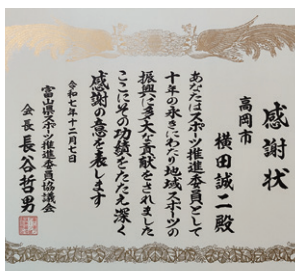 感謝状
高岡市
横田誠二殿
あなたはスポーツ推進委員として
十年の永きにわたり地域スポーツの
振興に多大な貢献をされました
ここにその功績をたたえ深く
感謝の意を表します
令和七年十二月七日
富山県スポーツ推進委員協議会
会長 長谷哲男